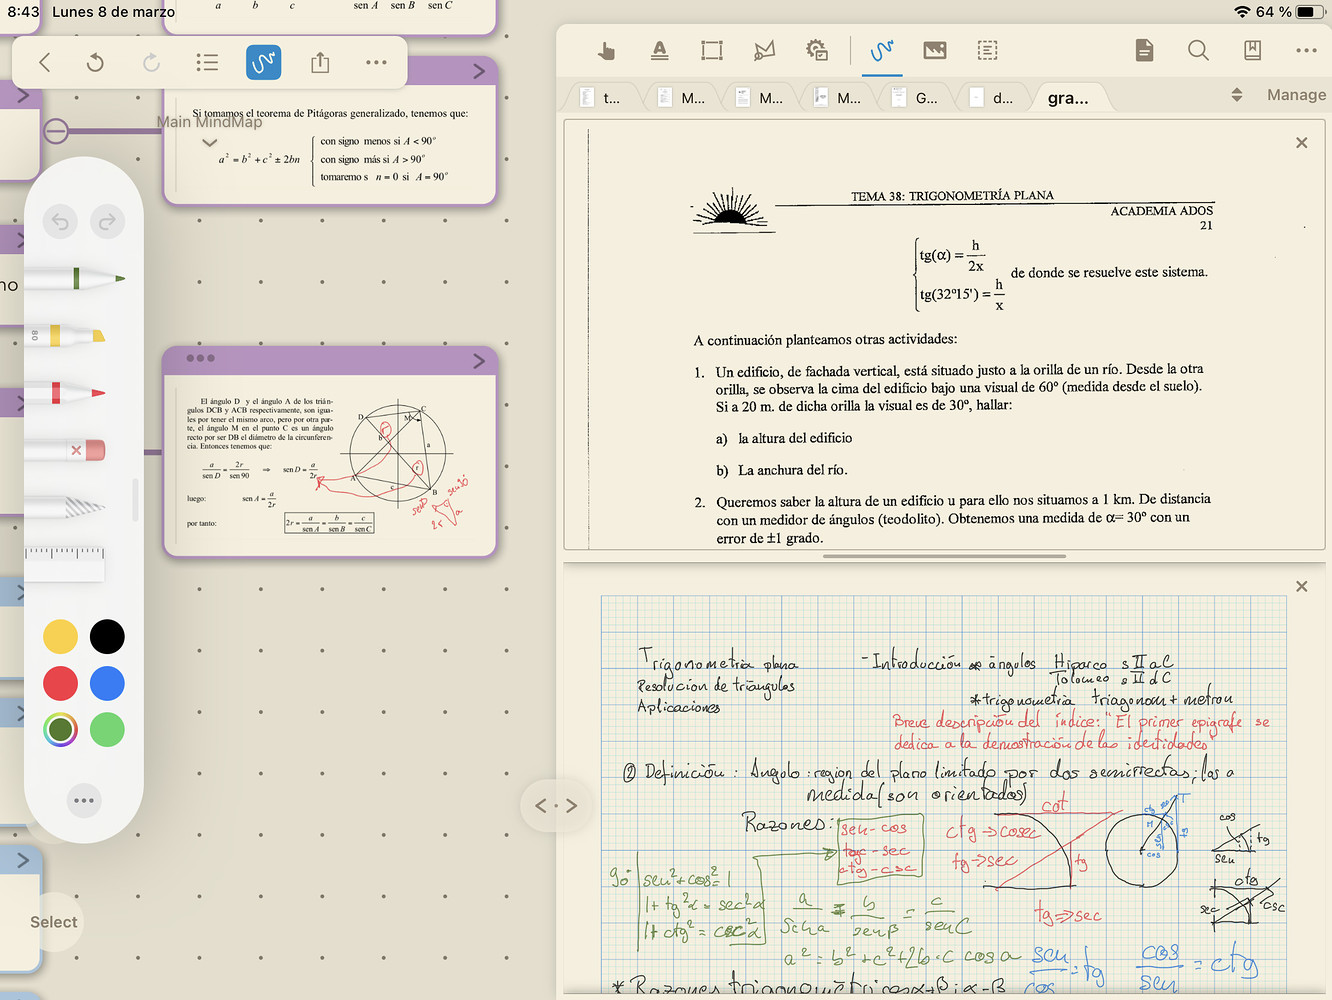 8:43 Lunes 8 de marzo
64 %
a b c sen A sen B sen C
Main MindMap
Si tomamos el teorema de Pitágoras generalizado, tenemos que:
a² = b² + c² ± 2bn
con signo menos si A < 90°
con signo más si A > 90°
tomaremo s n = 0 si A = 90°
no
80
El ángulo D y el ángulo A de los trián-
gulos DCB y ACB respectivamente, son igua-
les por tener el mismo arco, pero por otra par-
te, el ángulo M en el punto C es un ángulo
recto por ser DB el diámetro de la circunferen-
cia. Entonces tenemos que:
a/sen D = 2r/sen 90 ⇒ sen D = a/2r
luego: sen A = a/2r
por tanto: 2r = a/sen A = b/sen B = c/sen C
D C M b a r A c B
r
senD sen90
2r a
Select
t... M... M... M... G... d... gra... Manage
TEMA 38: TRIGONOMETRÍA PLANA
ACADEMIA ADOS
21
tg(α) = h/2x
de donde se resuelve este sistema.
tg(32º15') = h/x
A continuación planteamos otras actividades:
1. Un edificio, de fachada vertical, está situado justo a la orilla de un río. Desde la otra
orilla, se observa la cima del edificio bajo una visual de 60º (medida desde el suelo).
Si a 20 m. de dicha orilla la visual es de 30º, hallar:
a) la altura del edificio
b) La anchura del río.
2. Queremos saber la altura de un edificio u para ello nos situamos a 1 km. De distancia
con un medidor de ángulos (teodolito). Obtenemos una medida de α= 30º con un
error de ±1 grado.
Trigonometria plana
Resolucion de triangulos
Aplicaciones
- Introducción * ángulos Hiparco s II aC
Tolomeo s II dC
* trigonometria triagonom + metron
Breve descripción del índice: "El primer epigrafe se
dedica a la demostración de las identidades"
② Definición : Ángulo : region del plano limitado por dos semirrectas; los a
medida (son orientados)
Razones:
sen - cos
tgc - sec
ctg - csc
cot
ctg → cosec
tg → sec
tg
tg ⇒ sec
ctg T M tg sen cos
cos tg
sen
ctg
sec csc
go
sen² + cos² = 1
1 + tg²α = sec²α
1 + ctg² = csc²α
a/senα = b/senβ = c/senC
a² = b² + c² + 2b·c cos a
sen/cos = tg
cos/sen = ctg
* Razones trigonométricas α+β ; α-β